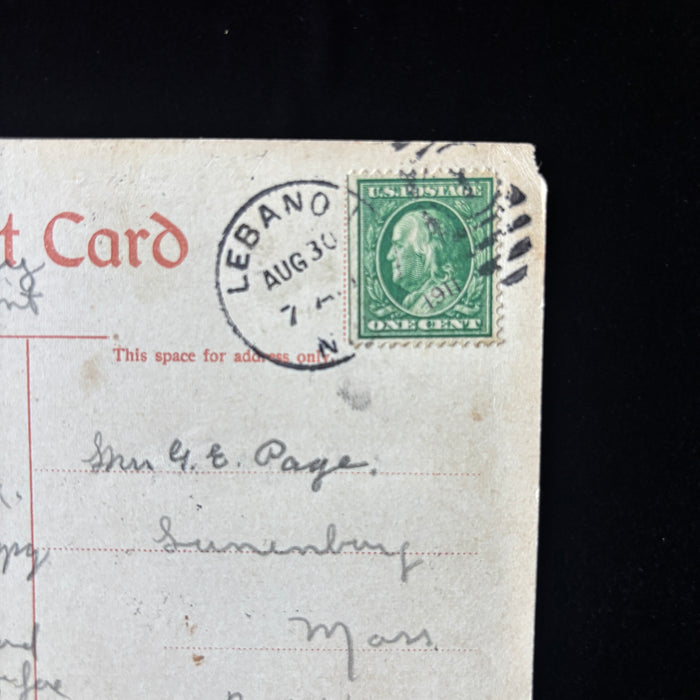 t Card
U.S. POSTAGE
LEBANO
AUG 30
7 A
1911
ONE CENT
N
This space for address only.
Mrs G. E. Page.
Lunenburg
Mass